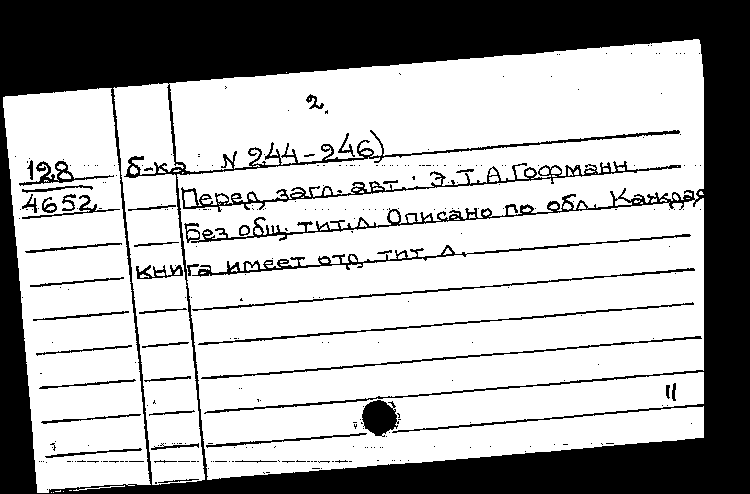 2.
128 б-ка N 244-246)
4652 Перед загл. авт.: Э.Т.А.Гофманн.
Без общ. тит.л. Описано по обл. Каждая
книга имеет отд. тит. л.
11